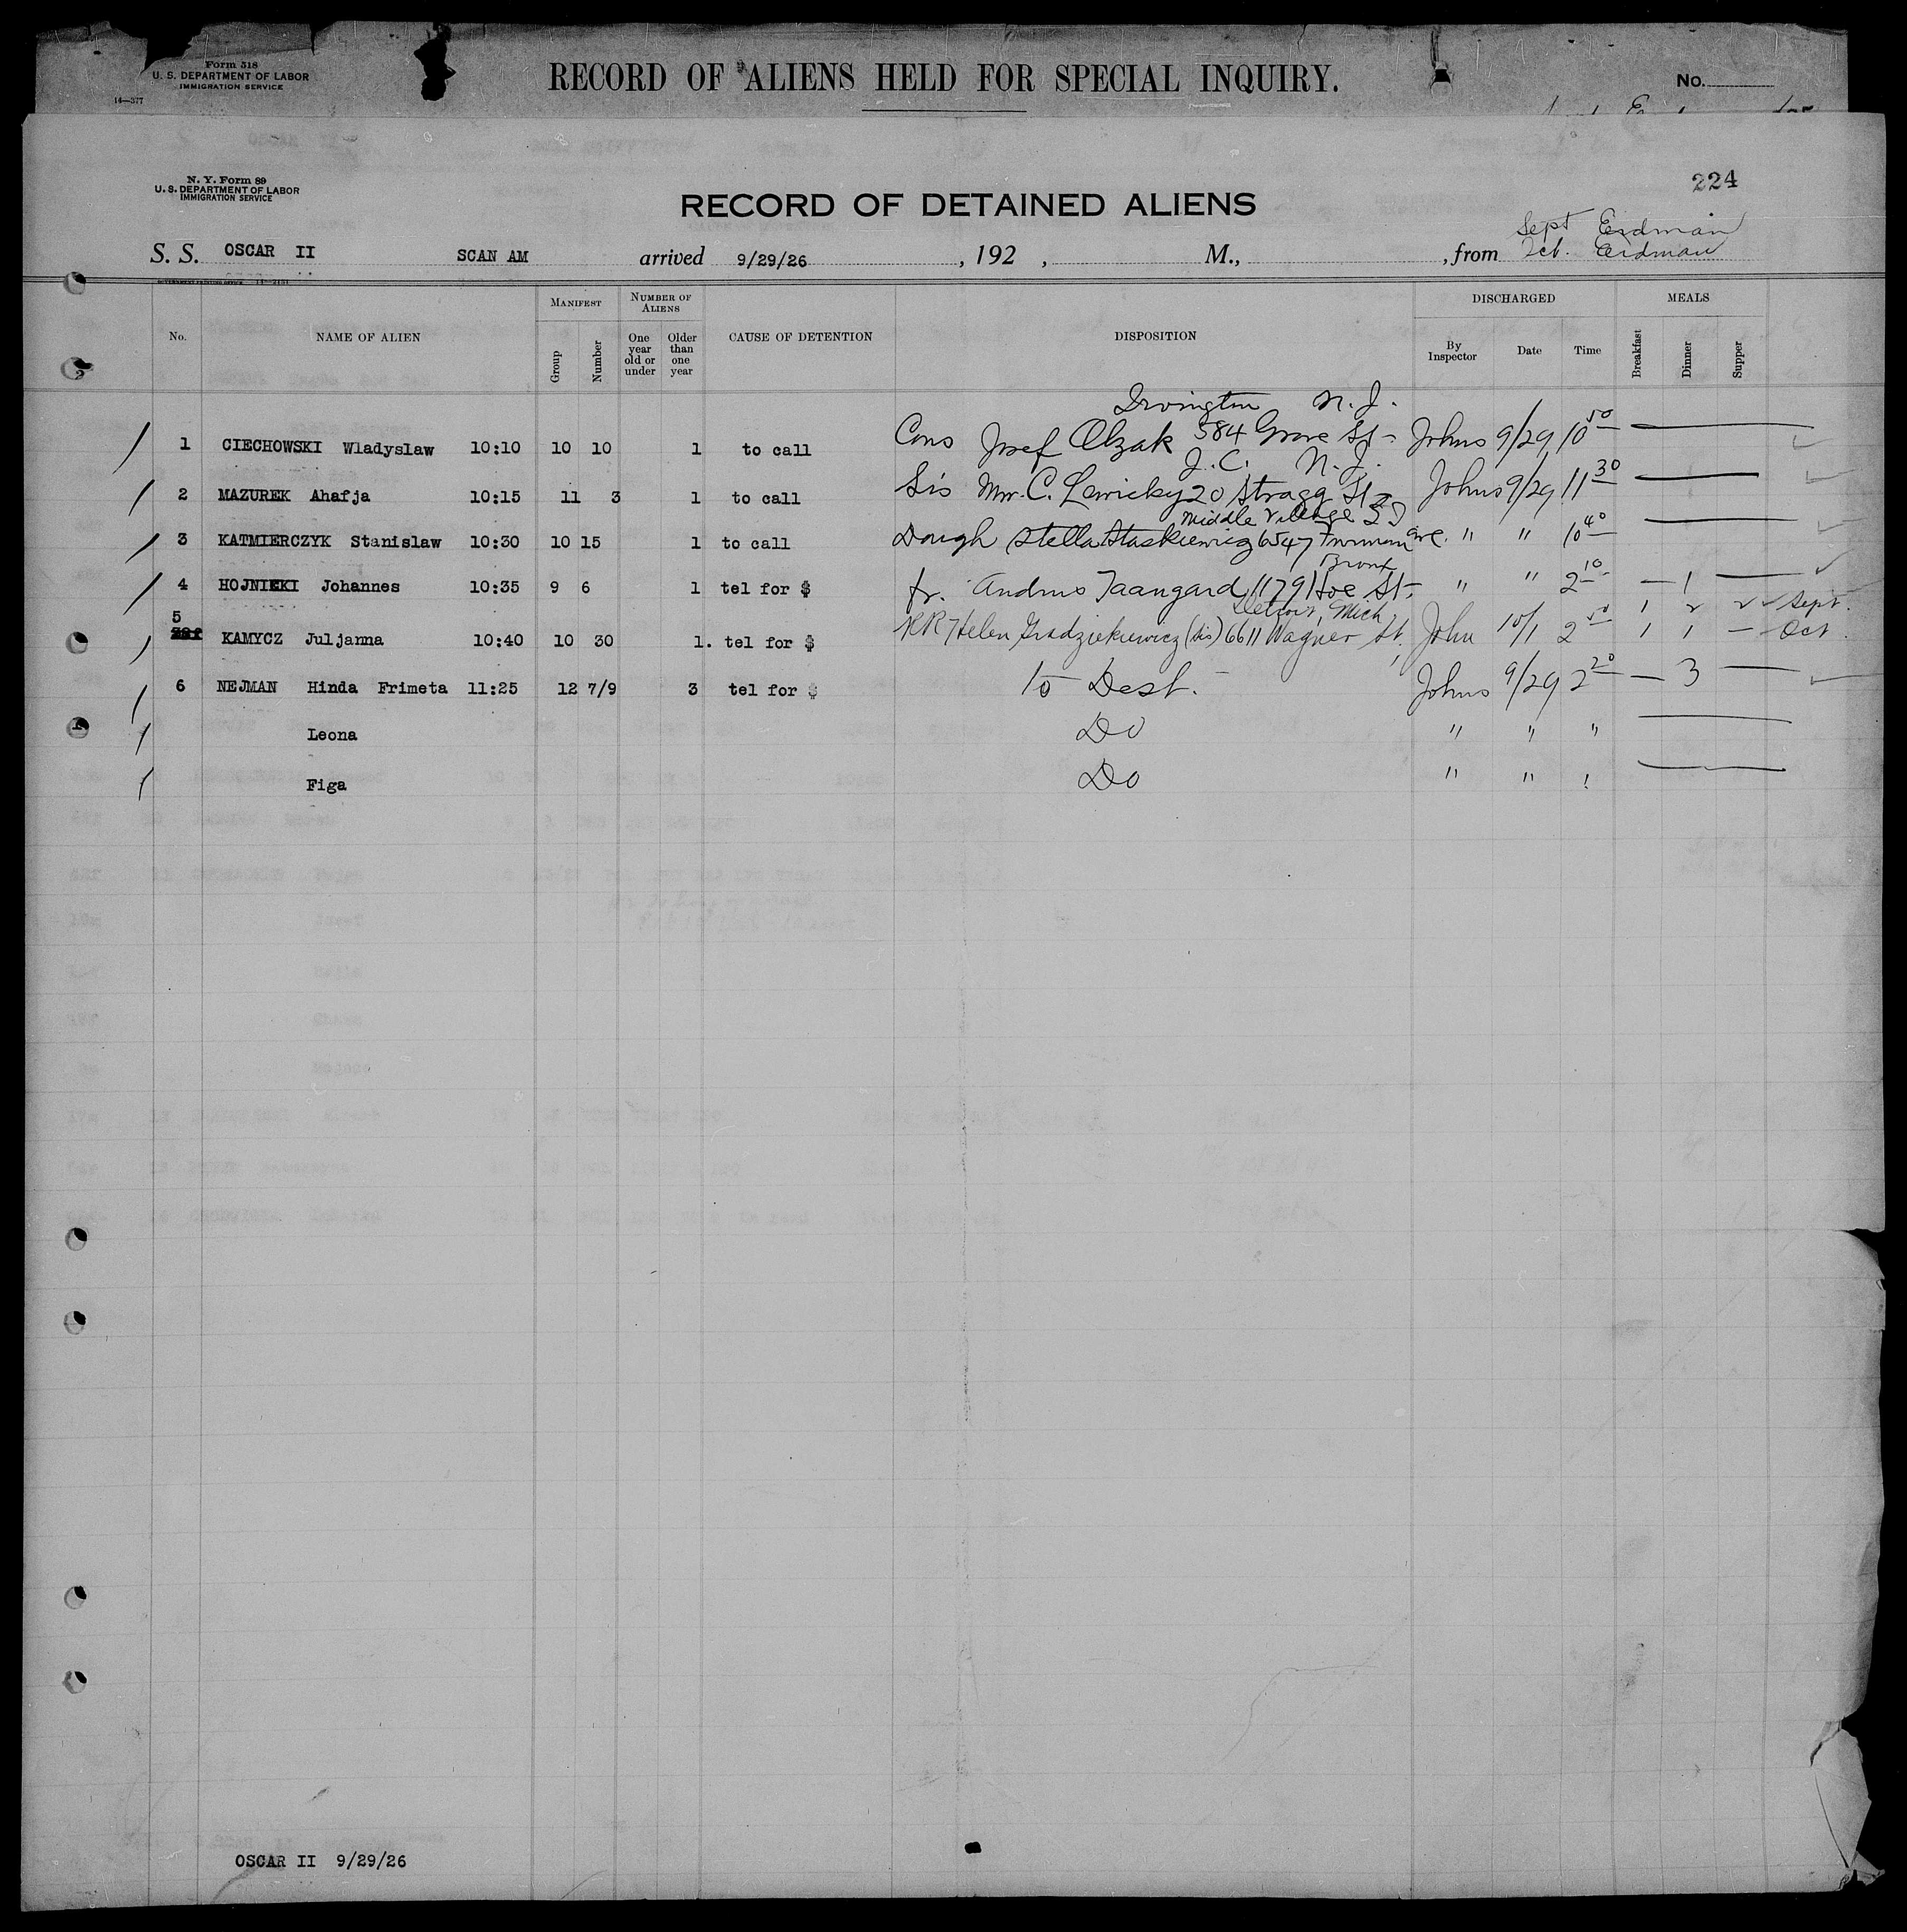 Form 518
U. S. DEPARTMENT OF LABOR
IMMIGRATION SERVICE
14—377
RECORD OF ALIENS HELD FOR SPECIAL INQUIRY.
No.
N. Y. Form 89
U. S. DEPARTMENT OF LABOR
IMMIGRATION SERVICE
224
RECORD OF DETAINED ALIENS
Sept Erdman
S. S. OSCAR II SCAN AM arrived 9/29/26 , 192 , M., , from Oct. Erdman
No. NAME OF ALIEN MANIFEST Group Number NUMBER OF ALIENS One year old or under Older than one year CAUSE OF DETENTION DISPOSITION DISCHARGED By Inspector Date Time MEALS Breakfast Dinner Supper
Irvington N. J.
1 CIECHOWSKI Wladyslaw 10:10 10 10 1 to call Cous Josef Olzak 584 Grove St- Johns 9/29 10 50
J. C. N. J.
2 MAZUREK Ahafja 10:15 11 3 1 to call Sis Mrs. C. Lewicky 20 Stragg St Johns 9/29 11 30
Middle Village
3 KATMIERCZYK Stanislaw 10:30 10 15 1 to call Daugh Stella Staskiewicz 6547 ave. " " 10 40
Bronx
4 HOJNIEKI Johannes 10:35 9 6 1 tel for $ fr. Andrus Taangard 1179 Hoe St- " " 2 10 — 1 —
Detroit, Mich 1 2 2 Sept.
5 KAMYCZ Juljanna 10:40 10 30 1. tel for $ RR Helen Gradziekiewicz (sis) 6611 Wagner St. John 10/1 2 50 1 1 — Oct
6 NEJMAN Hinda Frimeta 11:25 12 7/9 3 tel for $ to Dest. Johns 9/29 2 20 — 3 —
Leona Do " " "
Figa Do " " "
OSCAR II 9/29/26